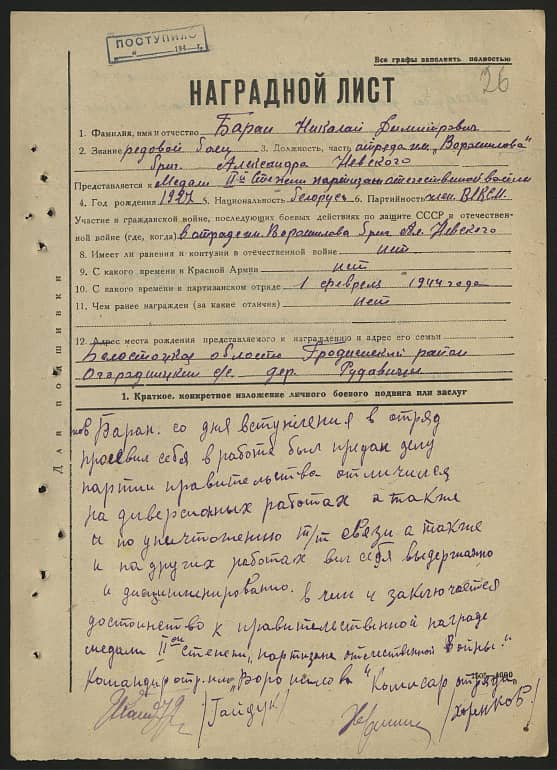 ПОСТУПИЛО
194 г.
Все графы заполнять полностью
26
НАГРАДНОЙ ЛИСТ
1. Фамилия, имя и отчество Баран Николай Димитрович
2. Звание редовой боец 3. Должность, часть отряда им. „Ворошилова"
бриг. Александра Невского
Представляется к Медали IIой Степени партизан отечественной войны
4. Год рождения 1927 5. Национальность белорус 6. Партийность член ВЛКСМ.
Участие в гражданской войне, последующих боевых действиях по защите СССР и отечествен-
ной войне (где, когда) в отряде им. Ворошилова бриг Ал. Невского
8. Имеет ли ранения и контузии в отечественной войне нет
9. С какого времени в Красной Армии нет
10. С какого времени в партизанском отряде 1 февраля 1944 года
11. Чем ранее награжден (за какие отличия) нет
12. Адрес места рождения представляемого к награждению и адрес его семьи
Белостоцкая область Гродненский район
Огародницкий с/с. дер. Рудавицы
Для подшивки
1. Краткое, конкретное изложение личного боевого подвига или заслуг
тов Баран. со дня вступления в отряд
проевил себя в работе был предан делу
партии правительства отличился
на диверсионых работах а также
и по уничтожению т/т связи а также
и на других работах вил себя выдержано
и дисциплинированно. в чем и заключается
достоинство к правительственной награде
медали IIой степени „партизана отечественной войны."
Командир отр. им „Ворошилова" Комисар отряда
/Гайдук/ /Жорнков/